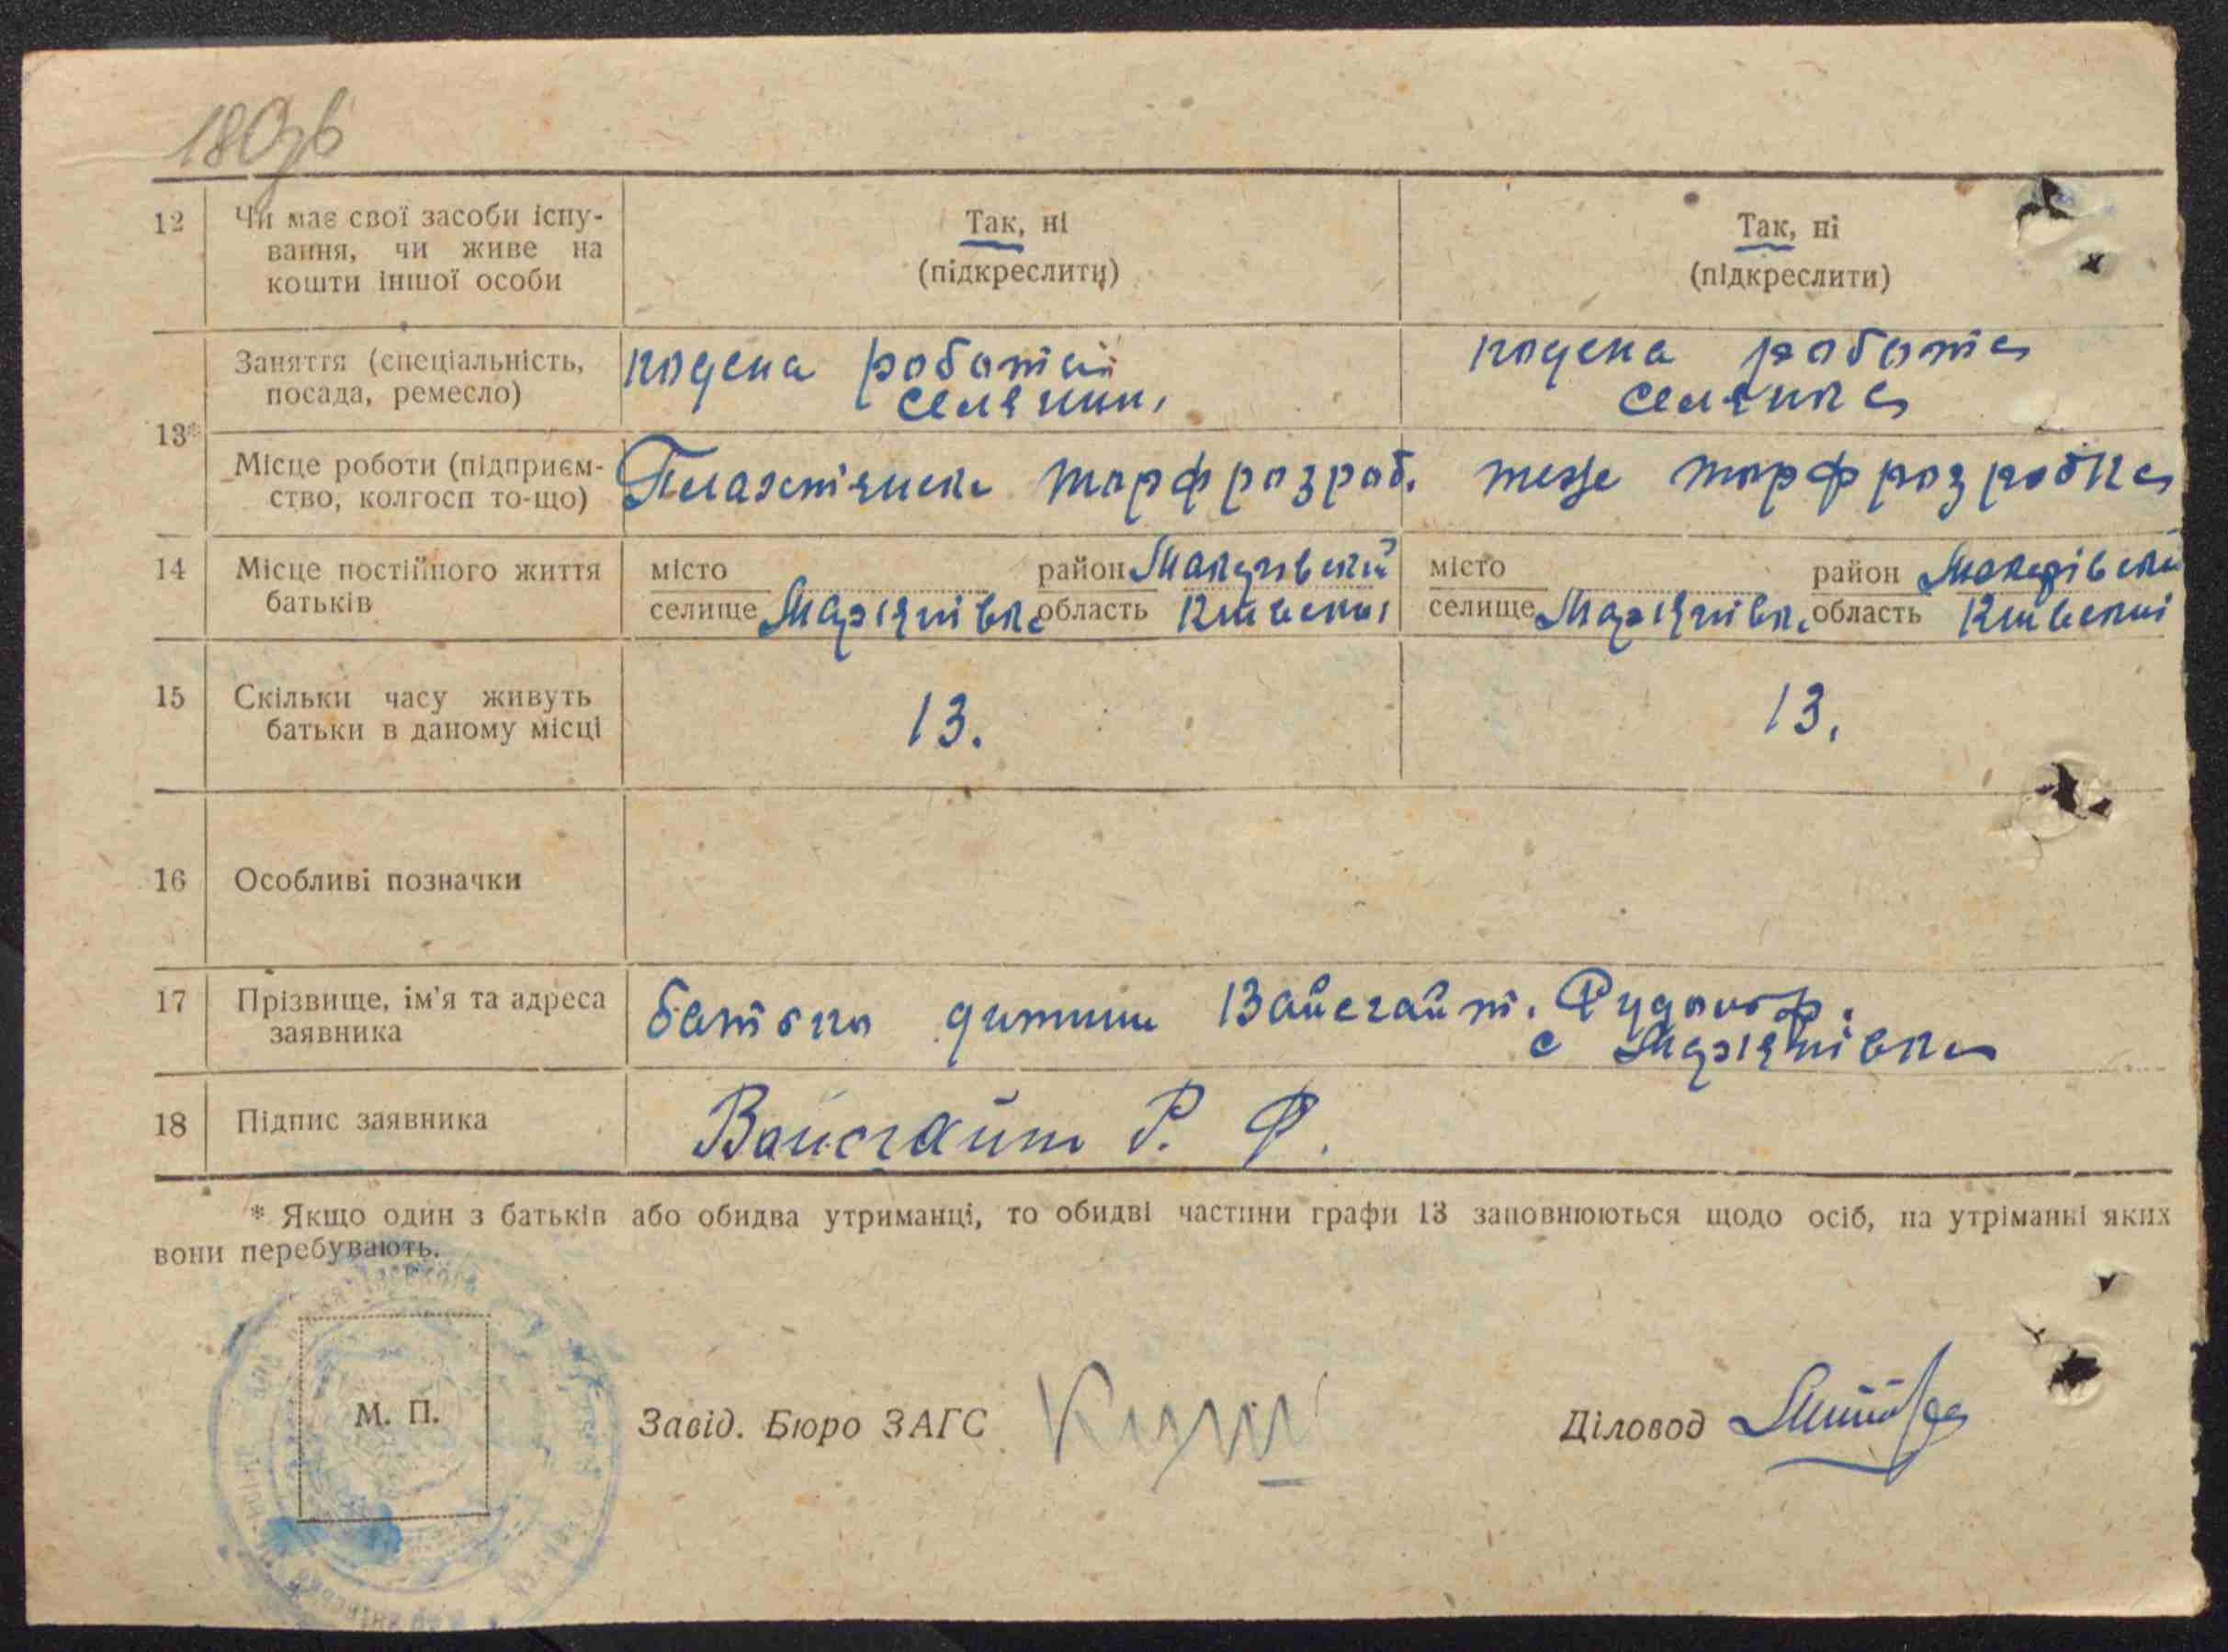 180зв
12 Чи має свої засоби існу-
вання, чи живе на
кошти іншої особи
Так, ні
(підкреслити)
Так, ні
(підкреслити)
13*
Заняття (спеціальність,
посада, ремесло)
роботай
селянин,
робота
селянка
Місце роботи (підприєм-
ство, колгосп то-що)
торфрозроб.
теж торфрозробка
14 Місце постійного життя
батьків
місто район Макарівский
селище Мар'янівка область Киівскоі
місто район Макарівский
селище Мар'янівка область Киівскоі
15 Скільки часу живуть
батьки в даному місці
13.
13.
16 Особливі позначки
17 Прізвище, ім'я та адреса
заявника
батько дитини Вайсгайт. Рудольф.
с Мар'янівка
18 Підпис заявника
Вайсгайт Р. Ф.
* Якщо один з батьків або обидва утриманці, то обидві частини графи 13 заповнюються щодо осіб, на утріманні яких
вони перебувають.
М. П.
Завід. Бюро ЗАГС
Діловод